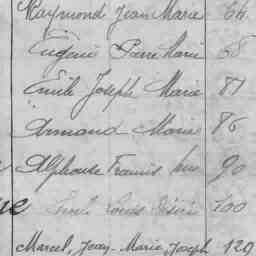 Raymond Jean Marie 64
Eugène Pierre Marie 68
Emile Joseph Marie 81
Armand Marie 86
Alphonse Francis 90
Louis Désiré 100
Marcel, Jean-Marie, Joseph 129